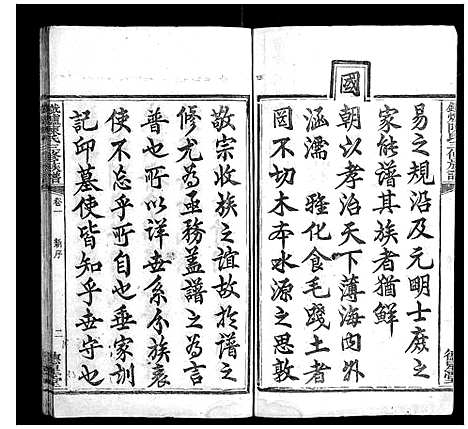 易之規沿及元明士庶之
家能譜其族者猶鮮
國
朝以孝治天下薄海内外
涵濡 雅化食毛踐土者
罔不切木本水源之思敦
敬宗收族之誼故於譜之
修尤為亟務蓋譜之為言
普也所以詳世系分族裏
使不忘乎所自也垂家訓
記邱墓使皆知乎世守也
卷一
新序
二